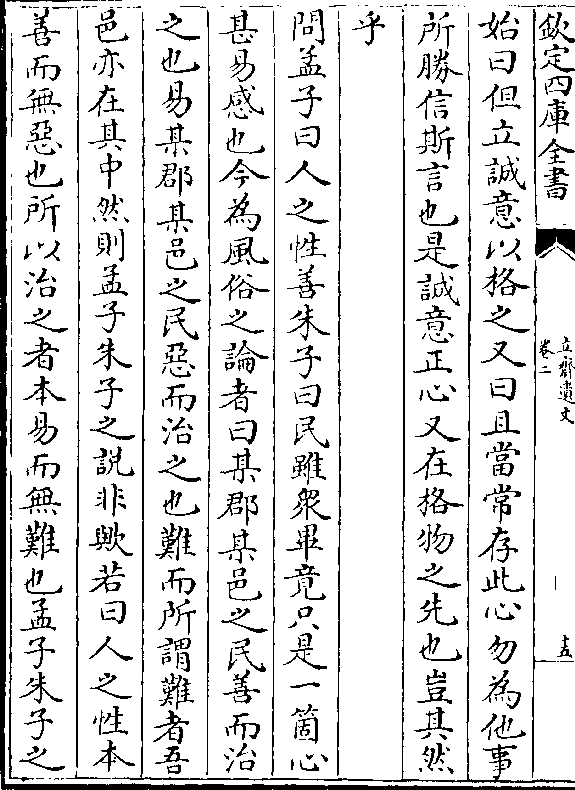 欽定四庫全書
立齋遺文
卷二
十五
始曰但立誠意以格之又曰且當常存此心勿為他事
所勝信斯言也是誠意正心又在格物之先也豈其然
乎
問孟子曰人之性善朱子曰民雖衆畢竟只是一箇心
甚易感也今為風俗之論者曰某郡某邑之民善而治
之也易某郡某邑之民惡而治之也難而所謂難者吾
邑亦在其中然則孟子朱子之説非歟若曰人之性本
善而無惡也所以治之者本易而無難也孟子朱子之